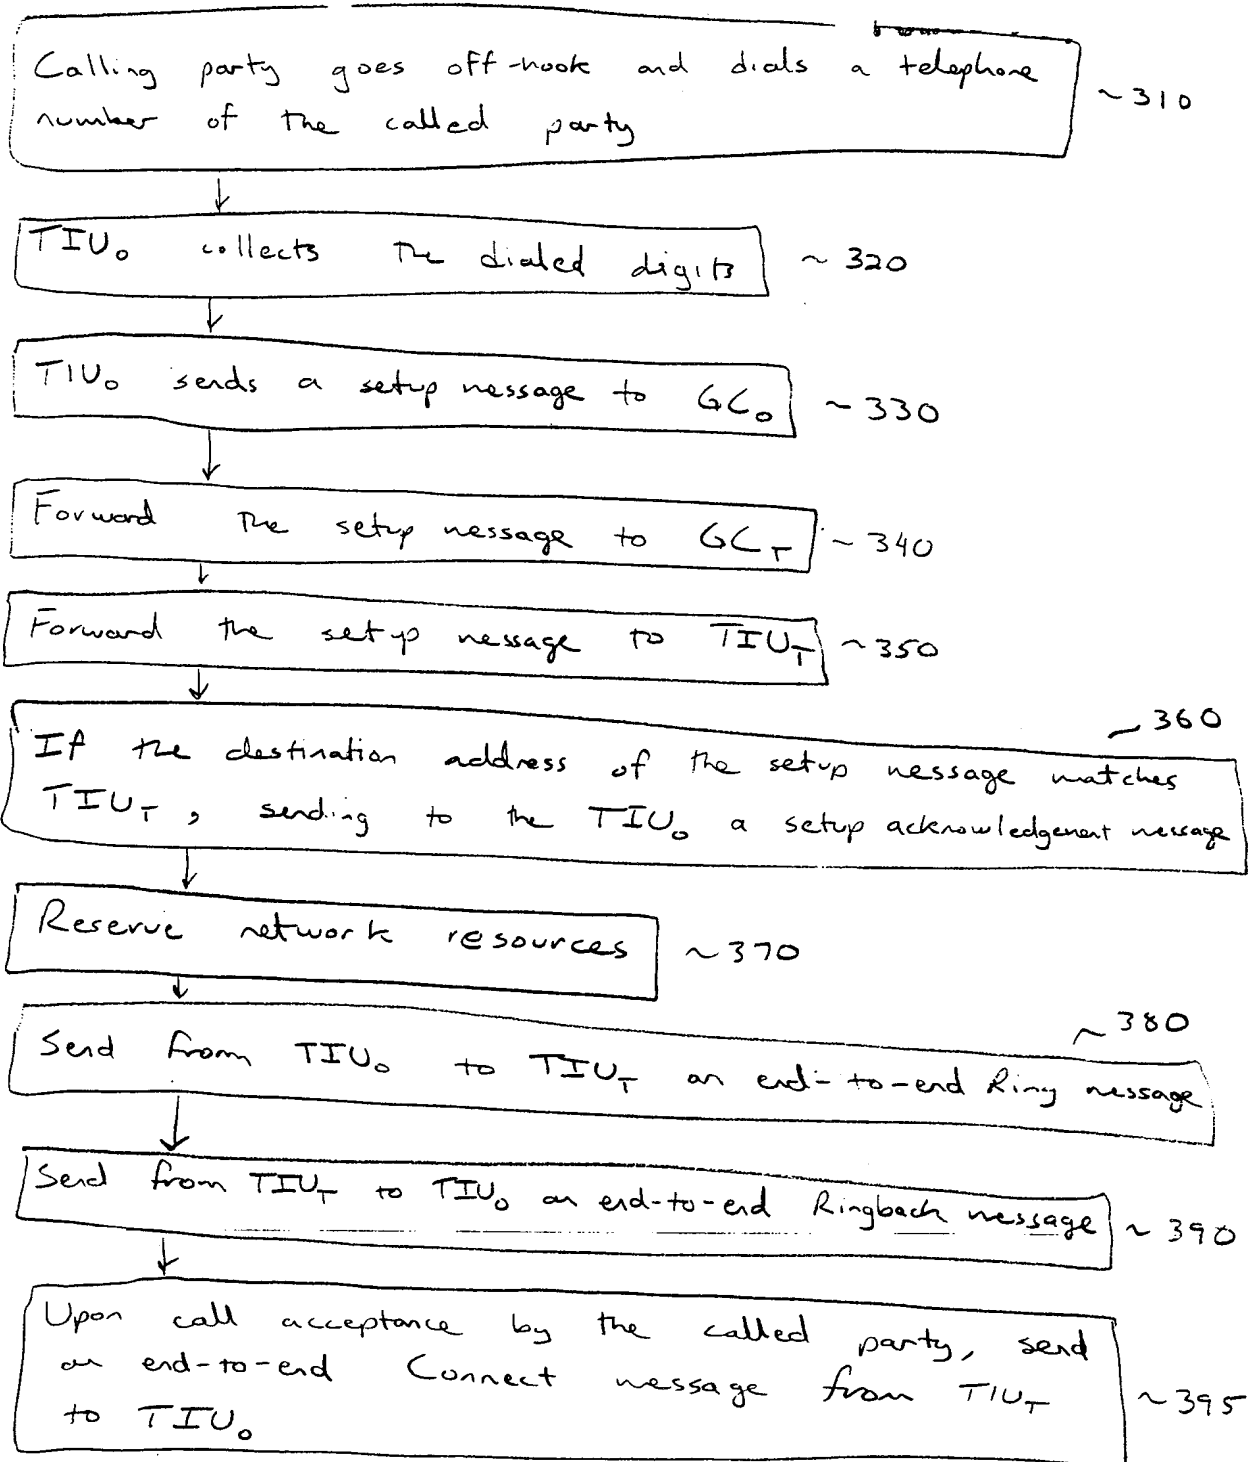 Calling party goes off-hook and dials a telephone
number of the called party
~310
TIU₀ collects the dialed digits
~ 320
TIU₀ sends a setup message to GC₀
~330
Forward the setup message to GC_T
~340
Forward the setup message to TIU_T
~350
~360
If the destination address of the setup message matches
TIU_T, sending to the TIU₀ a setup acknowledgement message
Reserve network resources
~370
~380
Send from TIU₀ to TIU_T an end-to-end Ring message
Send from TIU_T to TIU₀ an end-to-end Ringback message
~390
Upon call acceptance by the called party, send
an end-to-end Connect message from TIU_T
to TIU₀
~395